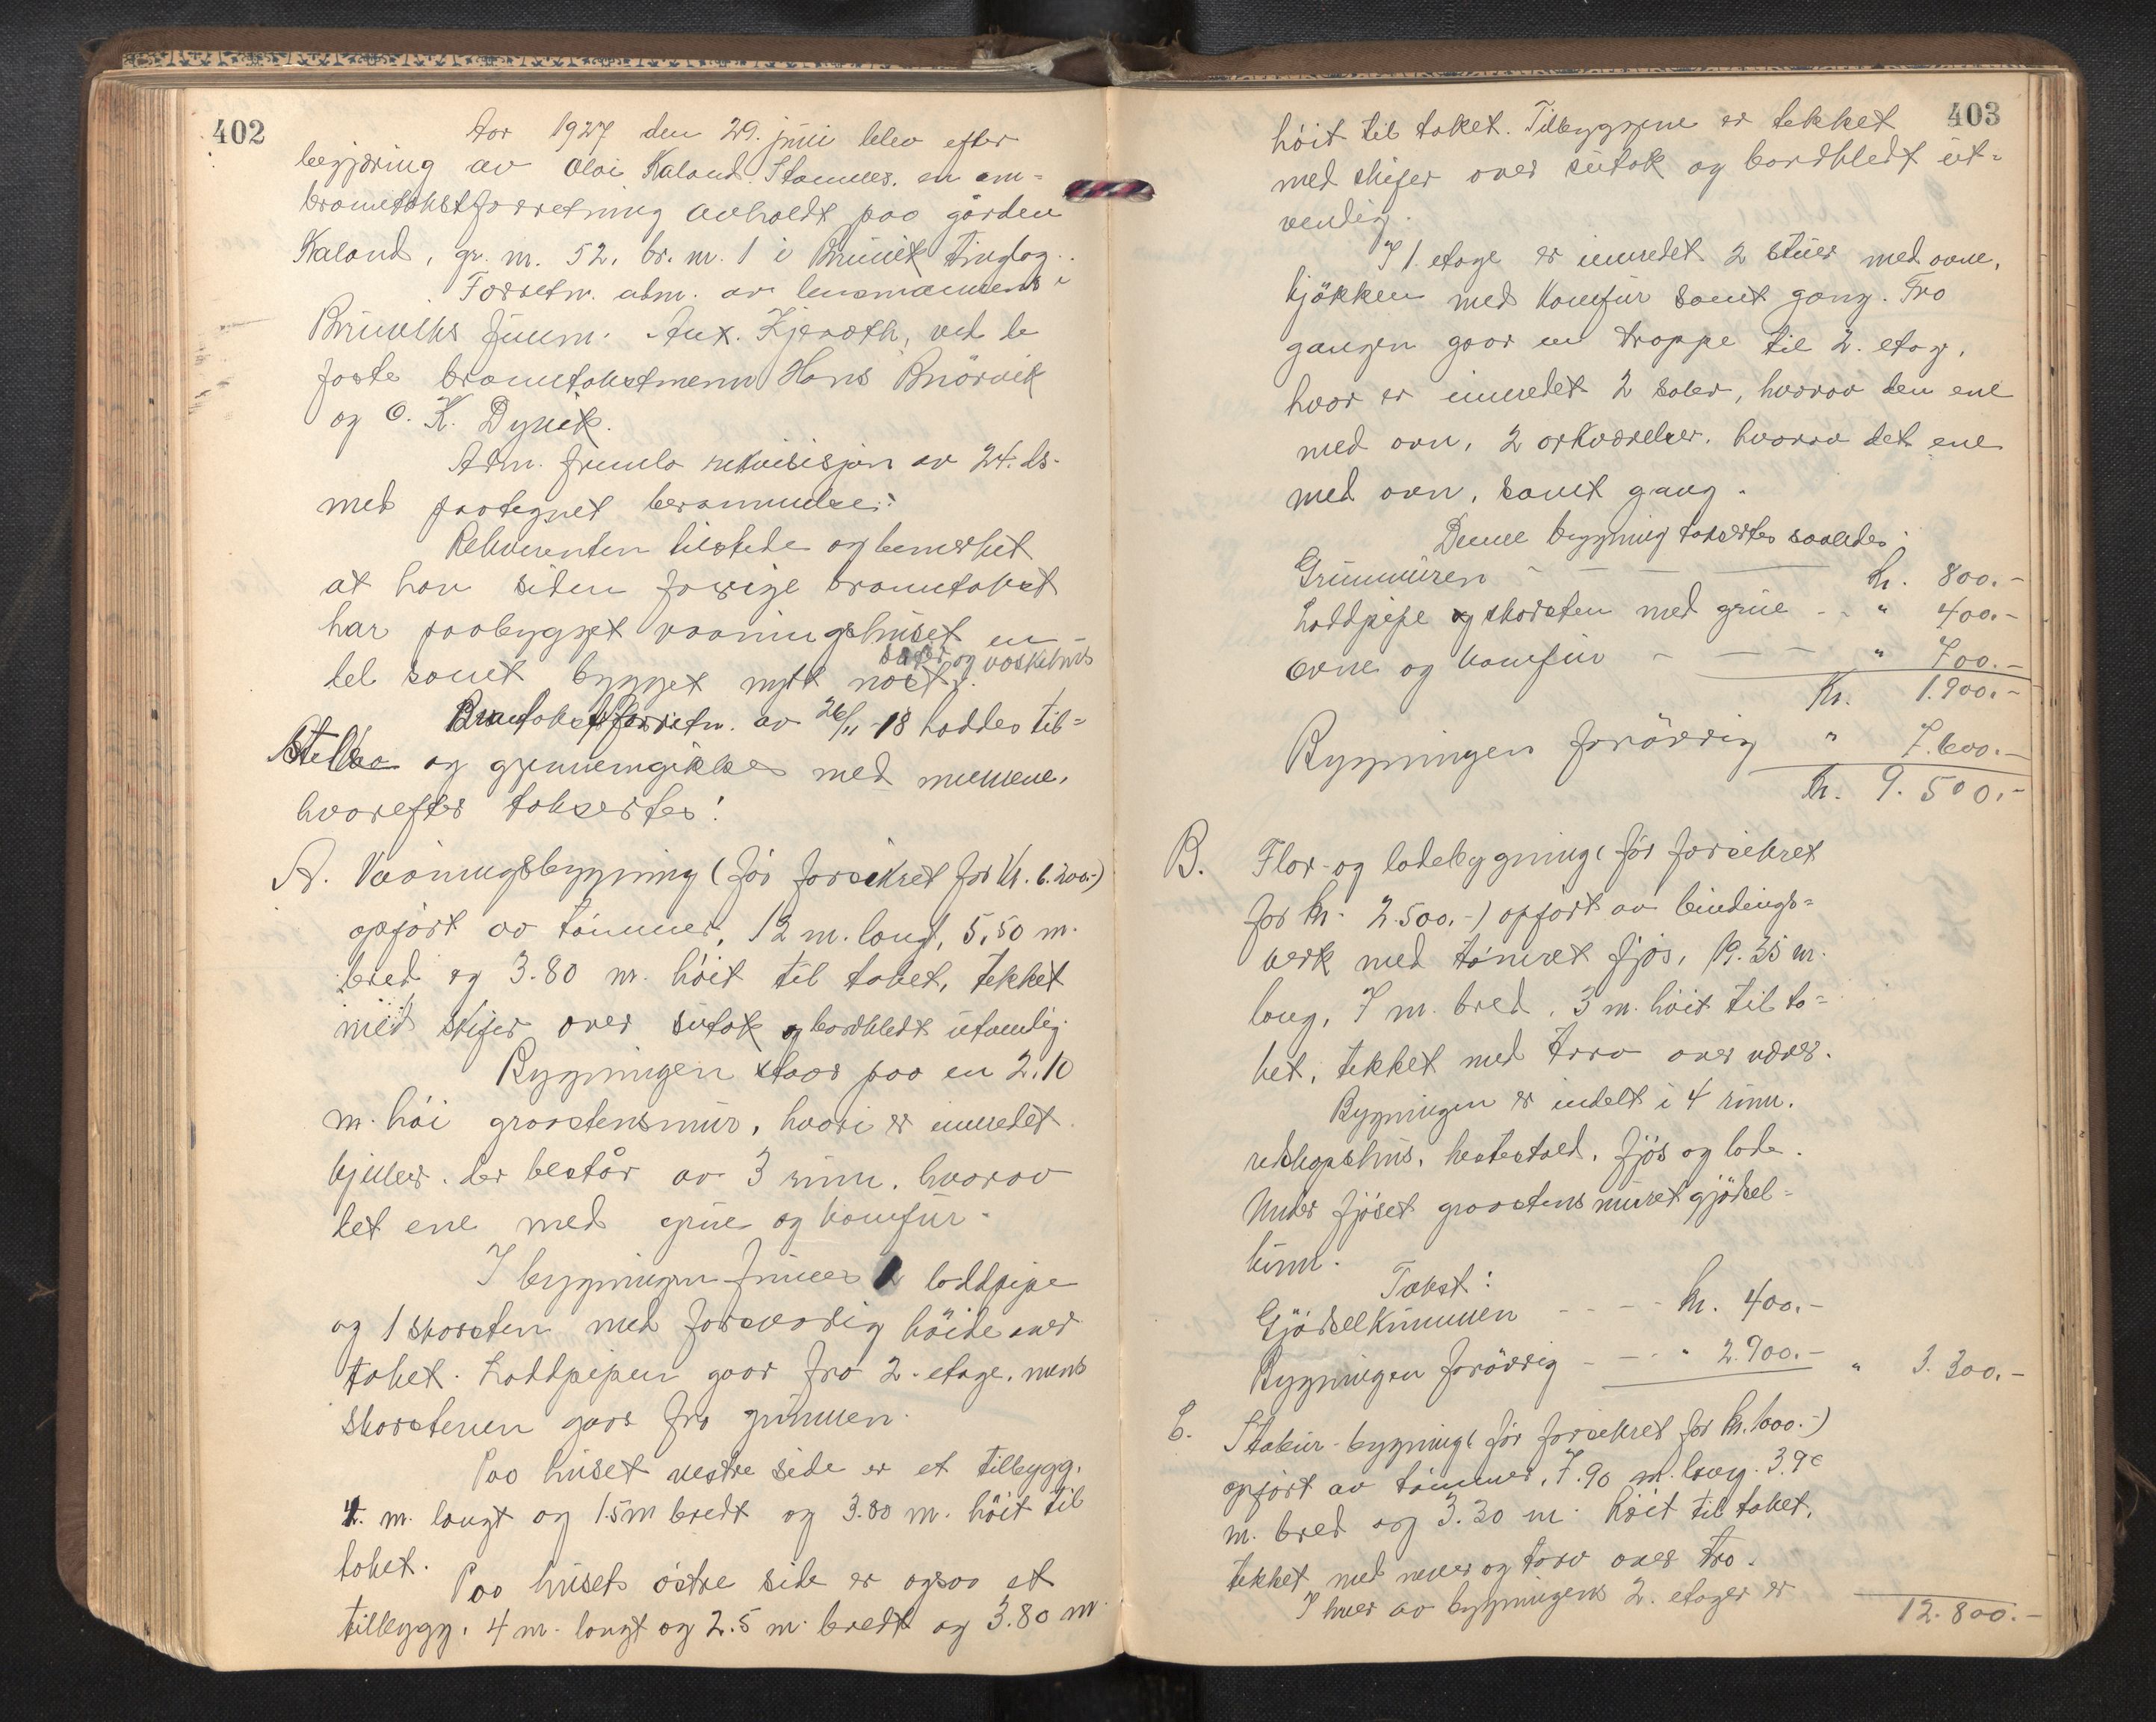 402
Aar 1927 den 29. juni blev efter
begjæring av Olai Kaland. Stamnes. en om=
branntakstforretning avholdt paa gården
Kaland, gr. nr. 52, br. nr. 1 i Bruvik tinglag.
Forretn. adm. av lensmannens i
Bruviks fullm. Ant. Kjerath, ved de
faste branntakstmenn Hans Bnörvik
og O. K. Dyvik.
Adm. fremla rekvisisjon av 24. ds.
med paategnet berammelse:
Rekvirenten tilstede og bemerket
at han siden forrige branntakst
har paabygget vaaningshuset en
del samt bygget nytt nøst.
og vaskehus
Branntakstforretn. av 26/11-18 haddes til=
stede og gjennemgikkes med mennene,
hvorefter taksertes:
A. Vaaningsbygning (før forsikret for Kr. 6.200.-)
opført av tømmer, 12 m. langt, 5,50 m.
bred og 3.80 m. höit til taket, tekket
med skifer over sutak og bordkledt utvendig.
Bygningen staar paa en 2.10
m. höi graastensmur, hvori er innredet
kjeller. der består av 3 rum. hvorav
det ene med grue og komfur.
I bygningen finnes 1 loddpipe
og 1 skorsten med forsvarlig höide over
taket. Loddpipen gaar fra 2. etage, mens
skorstenen gaar fra grunnen.
Paa huset vestre side er et tilbygg,
4. m. langt og 1.5 m bredt og 3.80 m. höit til
taket.
Paa husets östre side er ogsaa et
tilbygg. 4 m. langt og 2.5 m. bredt og 3.80 m.
403
höit til taket. Tilbyggene er tekket
med skifer over sutak og bordkledt ut=
vendig.
I 1. etage er innredet 2 stuer med ovne,
kjökken med komfur samt gang. Fra
gangen gaar en trappe til 2. etage,
hvor er innredet 2 saler, hvorav den ene
med ovn, 2 arkværelser, hvorav det ene
med ovn, samt gang.
Denne bygning taksertes saaledes:
Grunnmuren - — — Kr. 800.-
Loddpipe og skorsten med grue - - " 400.-
Ovne og komfur - — — " 700.-
Kr. 1.900.-
Bygningen forövrig " 7.600.-
Kr. 9.500.-
B. Flor- og ladebygning (før forsikret
for Kr. 2.500.-) opført av bindings=
verk med tømret fjös, 19.35 m.
lang, 7 m. bred, 3 m. höit til ta=
ket, tekket med torv over næver.
Bygningen er indelt i 4 rum.
redskapshus, hestestald, fjös og lade.
Under fjöset graastensmuret gjödsel=
kum.
Takst:
Gjödselkummen - - - - Kr. 400.-
Bygningen forövrig - — - " 2.900.- " 3.300.-
C. Stabur-bygning (før forsikret for Kr. 1000.-)
opført av tømmer, 7.90 m. lang. 3.90
m. bred og 3.30 m. höit til taket,
tekket med never og torv over tro.
I hver av bygningens 2. etager er
12.800.-